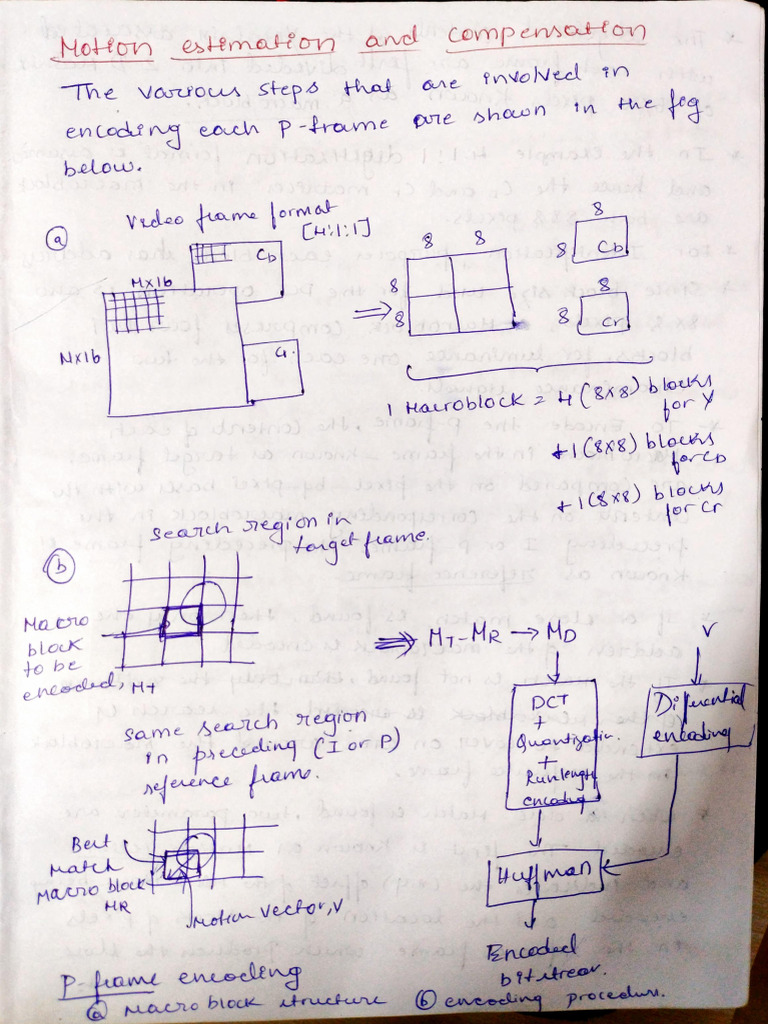 Motion estimation and compensation
The various steps that are involved in
encoding each P-frame are shown in the fig
below.
(a) Video frame format
[4:1:1]
Cb
M×16
N×16
Cr
8 8
8
8
8
8 Cb
8
8 Cr
1 Macroblock = 4 (8×8) blocks
for Y
+1 (8×8) blocks
for Cb
+1 (8×8) blocks
for Cr
search region in
target frame.
(b)
Macro
block
to be
encoded, MT
⇒ MT - MR → MD
V
DCT
+
Quantization
+
Runlength
encoding
Differential
encoding
same search region
in preceding (I or P)
reference frame.
Best
Match
Macro block
MR
Motion vector, V
Huffman
Encoded
bitstream.
P-frame encoding
(a) Macro block structure (b) encoding procedure.